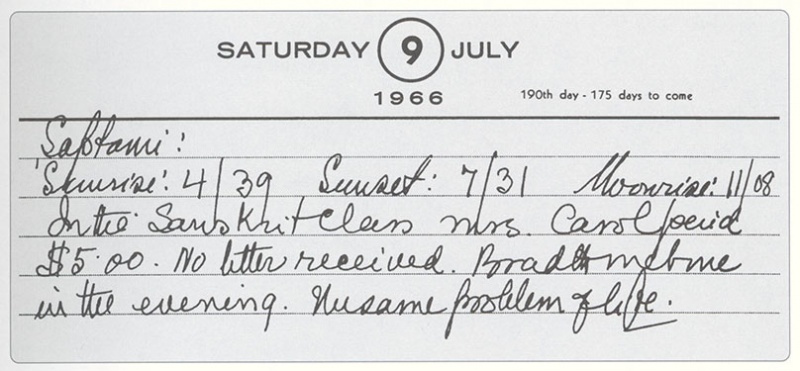 SATURDAY 9 JULY
1966 190th day - 175 days to come
'Saptami'!
'Sunrise': 4/39 Sunset: 7/31 Moonrise: 11/08
In the Sanskrit class Mrs. Carol paid
$5.00. No letter received.
in the evening. same problem of life.